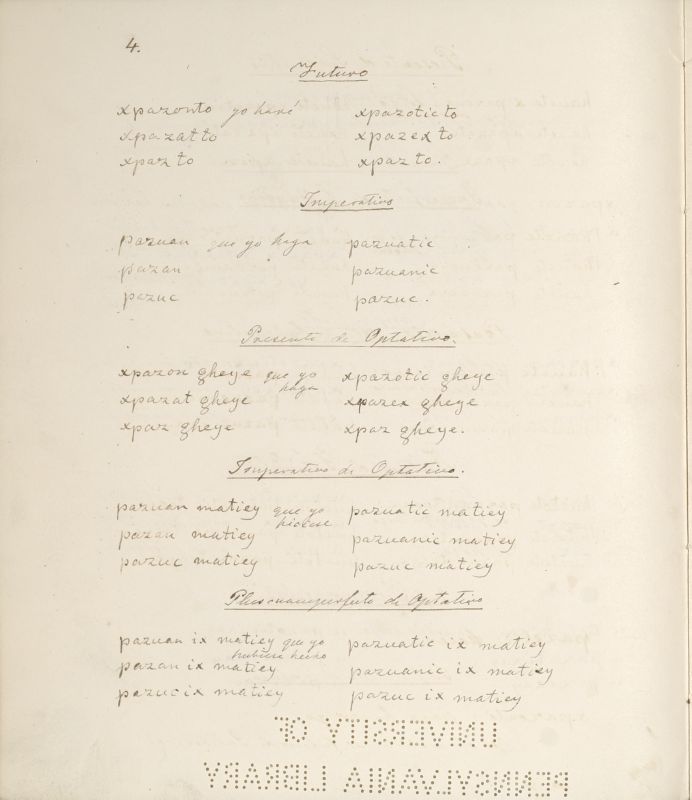 4.
Futuro
xpazonto yo haré xpazotic to
xpazat to xpazex to
xpaz to xpaz to.
Imperativo
pazuan que yo haga pazuatic
pazan pazuanic
pazuc pazuc.
Presente de Optativo.
xpazon gheye que yo haga xpazotic gheye
xpazat gheye xpazex gheye
xpaz gheye xpaz gheye.
Imperativo de Optativo.
pazuan matiey que yo hiciese pazuatic matiey
pazan matiey pazuanic matiey
pazuc matiey pazuc matiey.
Pluscuamperfeto de Optativo
pazuan ix matiey que yo hubiese hecho pazuatic ix matiey
pazan ix matiey pazuanic ix matiey
pazuc ix matiey pazuc ix matiey
UNIVERSITY OF
PENNSYLVANIA LIBRARY